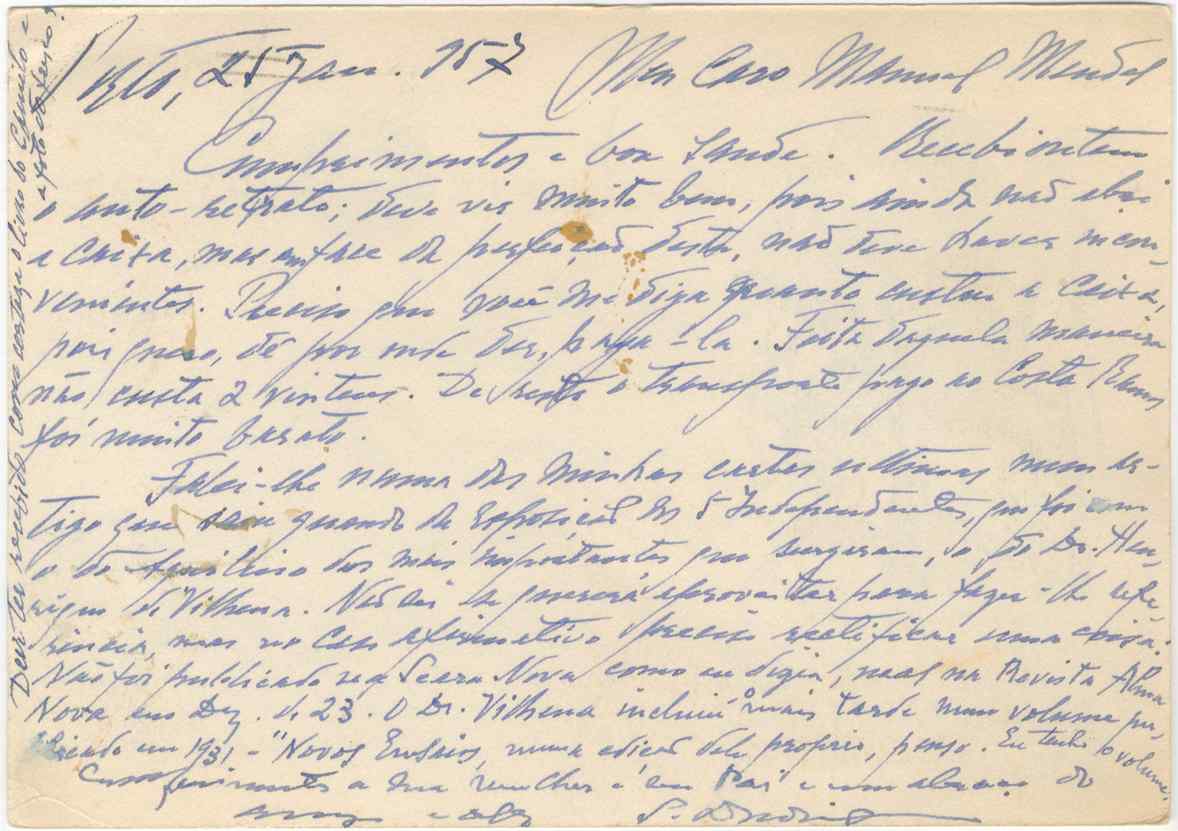 Porto, 25 Jan. 957 Meu Caro Manuel Mendes
Cumprimentos e boa saúde. Recebi ontem
o auto-retrato; deve vir muito bem, pois ainda não abri
a caixa, mas em face da perfeição desta, não deve haver incon-
venientes. Preciso que você me diga quanto custou a caixa,
pois quero, dê por onde der, paga-la. Feita daquela maneira
não custa 2 vintens. De resto o transporte pago ao Costa
foi muito barato.
Falei-lhe numa das minhas cartas ultimas num ar-
tigo que saiu quando da Exposição dos 5 Independentes, que foi com
o do Aquilino dos mais importantes que surgiram, o do Dr. Hen-
rique de Vilhena. Não sei se quererá aproveitar para fazer-lhe refe-
rencia, mas no caso afirmativo preciso rectificar uma coisa:
Não foi publicado na Seara Nova como eu dizia, mas na Revista Alma
Nova em Dez. de 23. O Dr. Vilhena incluiu o mais tarde num volume pu-
blicado em 1931 - "Novos Ensaios, numa edição dele proprio, penso. Eu tenho o volume.
Cumprimentos a sua mulher e seu Pai e um abraço do
S.
Deve ter recebido como registo o livro do e
a foto do